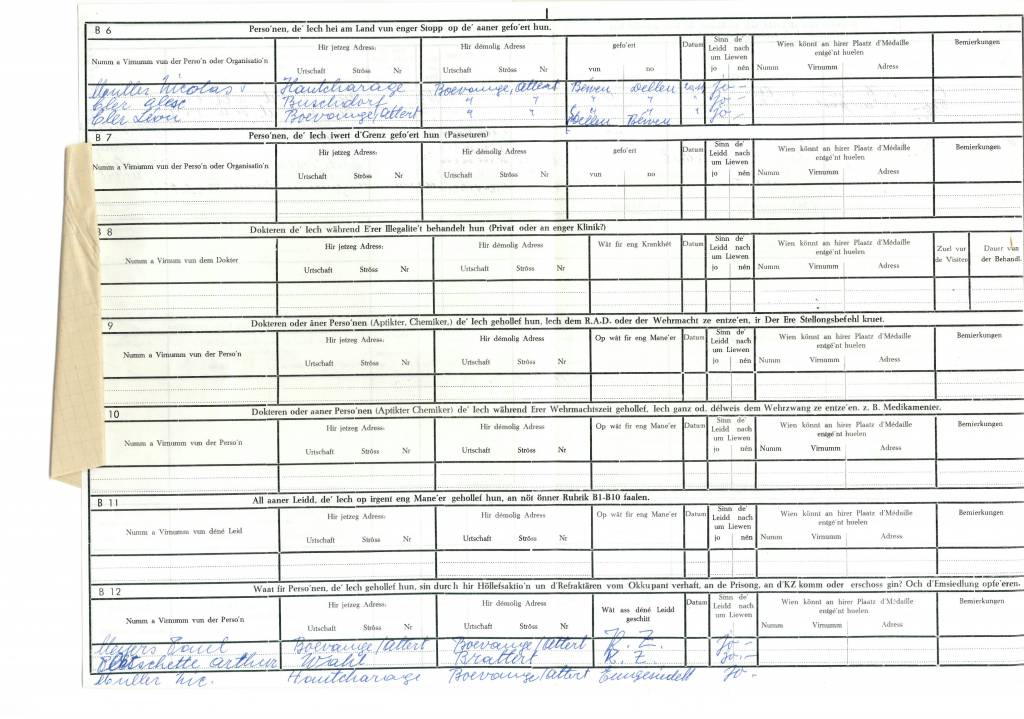 B 6 Perso'nen, de' Iech hei am Land vun enger Stopp op de' aaner gefo'ert hun.
Numm a Virnumm vun der Perso'n oder Organisatio'n Hir jetzeg Adress: Hir démolig Adress gefo'ert Datum Sinn de' Leidd nach um Liewen Wien könnt an hirer Plaatz d'Médaille entgé'nt huelen Bemierkungen
Urtschaft Ströss Nr Urtschaft Ströss Nr vun no jo nén Numm Virnumm Adress
Muller Nicolas Hautcharage Boevange/Attert Bewen Dellen Jo -
Cler Buschdorf " " " " " Jo -
Cler Léon Boevange/Attert " " Dellen Bewen " Jo -
B 7 Perso'nen, de' Iech iwert d'Grenz gefo'ert hun (Passeuren)
Numm a Virnumm vun der Perso'n oder Organisatio'n Hir jetzeg Adress: Hir démolig Adress gefo'ert Datum Sinn de' Leidd nach um Liewen Wien könnt an hirer Plaatz d'Médaille entgé'nt huelen Bemierkungen
Urtschaft Ströss Nr Urtschaft Ströss Nr vun no jo nén Numm Virnumm Adress
B 8 Dokteren de' Iech während E'rer Illegalite't behandelt hun (Privat oder an enger Klinik?)
Numm a Virnum vun dem Dokter Hir jetzeg Adress: Hir démolig Adress Wât fir eng Krankhét Datum Sinn de' Leidd nach um Liewen Wien könnt an hirer Plaatz d'Médaille entgé'nt huelen Zuel vur de Visiten Dauer vun der Behandl.
Urtschaft Ströss Nr Urtschaft Ströss Nr jo nén Numm Virnumm Adress
9 Dokteren oder âner Perso'nen (Aptikter, Chemiker,) de' Iech gehollef hun, Iech dem R.A.D. oder der Wehrmacht ze entze'en, ir Der Ere Stellongsbefehl kruet.
Numm a Virnumm vun der Perso'n Hir jetzeg Adress: Hir démolig Adress Op wât fir eng Mane'er Datum Sinn de' Leidd nach um Liewen Wien könnt an hirer Plaatz d'Médaille entgé'nt huelen Bemierkungen
Urtschaft Ströss Nr Urtschaft Ströss Nr jo nén Numm Virnumm Adress
10 Dokteren oder aaner Perso'nen (Aptikter Chemiker) de' Iech während Erer Wehrmachtszeit gehollef, Iech ganz od. délweis dem Wehrzwang ze entze'en. z. B. Medikamenter.
Numm a Virnumm vun der Perso'n Hir jetzeg Adress: Hir démolig Adress Op wât fir eng Mane'er Datum Sinn de' Leidd nach um Liewen Wien könnt an hirer Plaatz d'Médaille entgé'nt huelen Bemierkungen
Urtschaft Ströss Nr Urtschaft Ströss Nr jo nén Numm Virnumm Adress
B 11 All aaner Leidd, de' Iech op irgent eng Mane'er gehollef hun, an nöt önner Rubrik B1-B10 faalen.
Numm a Virnumm vun déné Leid Hir jetzeg Adress: Hir démolig Adress Op wât fir eng Mane'er Datum Sinn de' Leidd nach um Liewen Wien könnt an hirer Plaatz d'Médaille entgé'nt huelen Bemierkungen
Urtschaft Ströss Nr Urtschaft Ströss Nr jo nén Numm Virnumm Adress
B 12 Waat fir Personen, de' Iech gehollef hun, sin durch hir Höllefsaktio'n un d'Refraktären vom Okkupant verhaft, an de Prisong, an d'KZ komm oder erschoss gin? Och d'Emsiedlung opfe'eren.
Numm a Virnumm vun der Perso'n Hir jetzeg Adress: Hir démolig Adress Wât ass déné Leidd geschitt Datum Sinn de' Leidd nach um Liewen Wien könnt an hirer Plaatz d'Médaille entgé'nt huelen Bemierkungen
Urtschaft Ströss Nr Urtschaft Ströss Nr jo nén Numm Virnumm Adress
Meyers Paul Boevange/Attert Boevange/Attert K. Z. Jo -
Pletschette Arthur Wahl Brattert K. Z. Jo -
Muller Nic. Hautcharage Boevange/Attert Emgesidelt Jo -